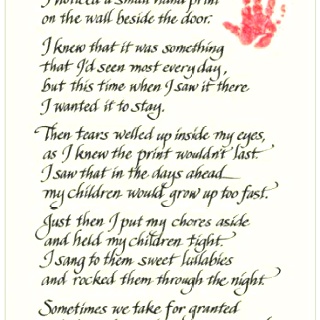 I noticed a small hand print
on the wall beside the door.
I knew that it was something
that I'd seen most every day,
but this time when I saw it there
I wanted it to stay.
Then tears welled up inside my eyes,
as I knew the print wouldn't last.
I saw that in the days ahead
my children would grow up too fast.
Just then I put my chores aside
and held my children tight.
I sang to them sweet lullabies
and rocked them through the night.
Sometimes we take for granted